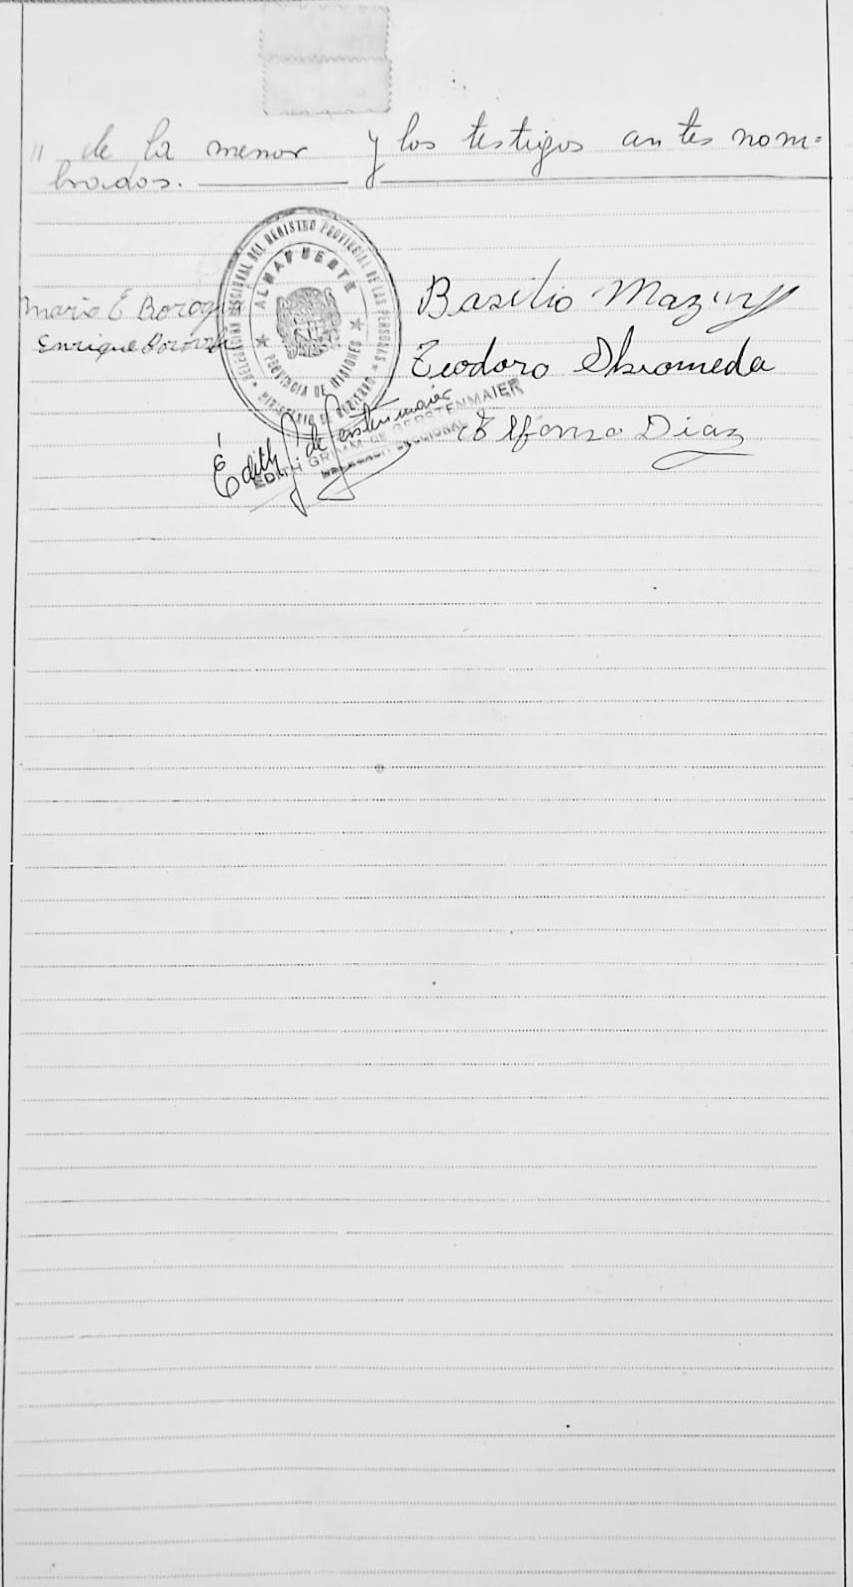 " de la menor y los testigos antes nom=
brados.
DELEGACION SECCIONAL DEL REGISTRO PROVINCIAL DE LAS PERSONAS
ALMAFUERTE
PROVINCIA DE MISIONES
MINISTERIO DE GOBIERNO
Mario E
Basilio
Enrique
Teodoro
Elfonso Diaz
Edith G. de Gerstenmaier
EDITH GRIMM DE GERSTENMAIER